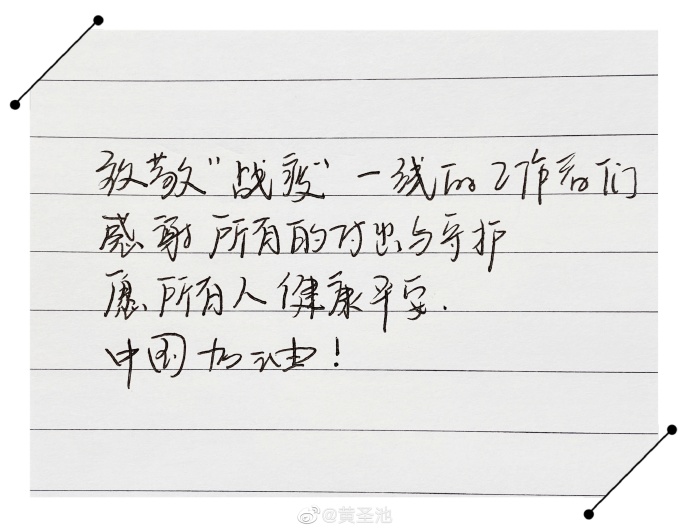 致敬“战疫”一线的工作者们
感谢所有的付出与守护
愿所有人健康平安.
中国加油！
@黄圣池